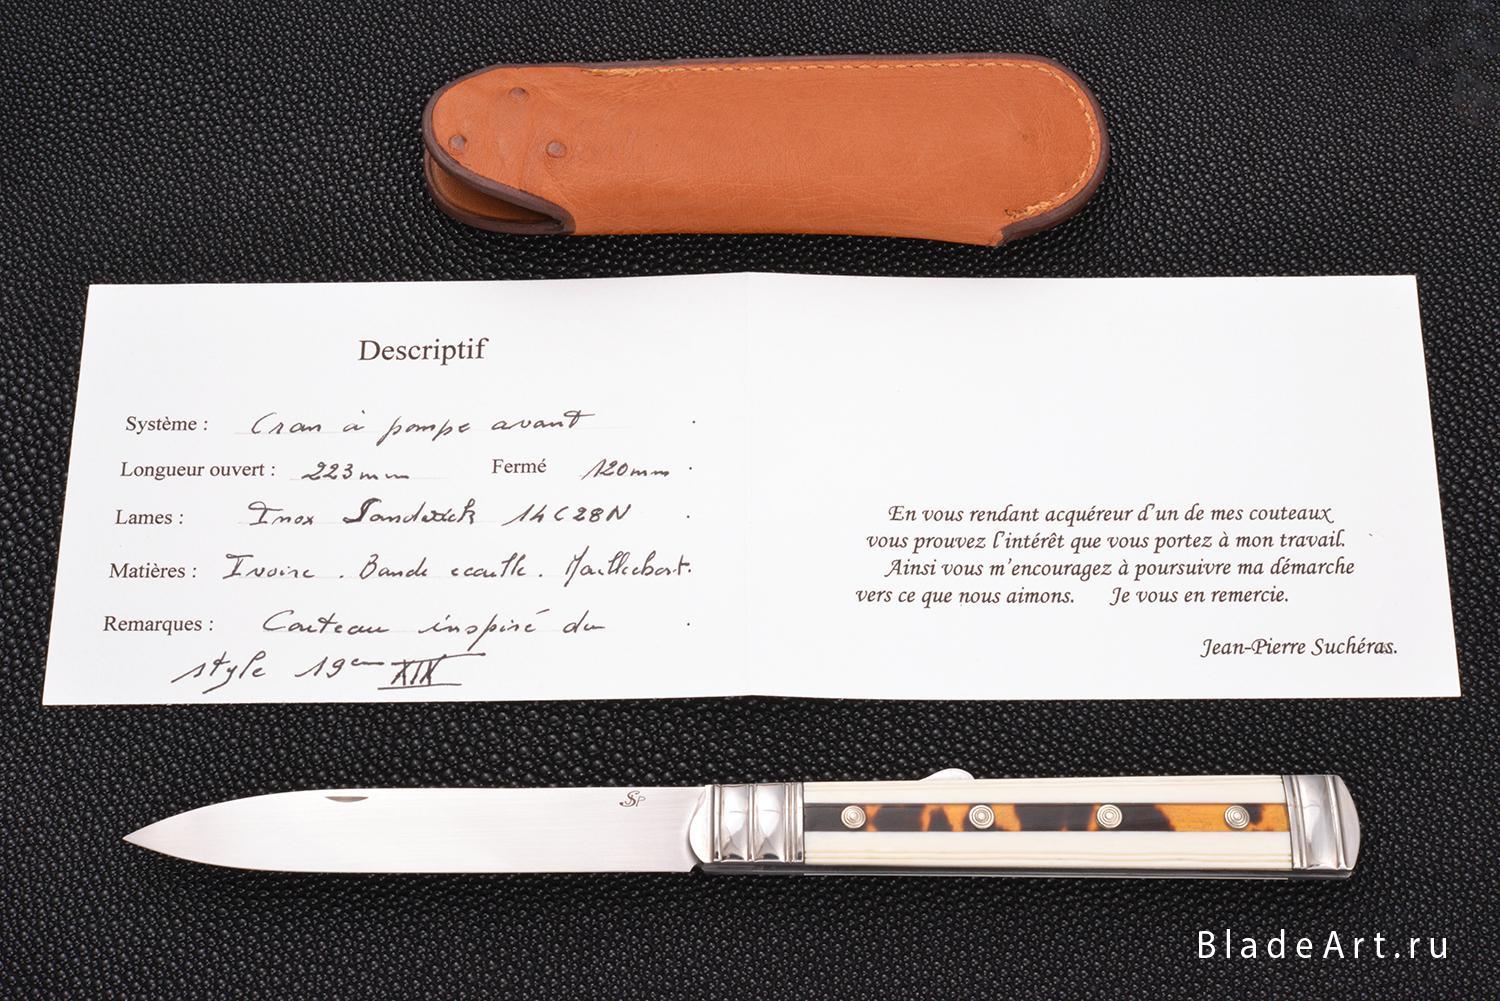 Descriptif
Système : Cran à pompe avant .
Longueur ouvert : 223mm Fermé 120mm .
Lames : Inox Sandwick 14C28N .
Matières : Ivoire . Bande écaille .
Remarques : Couteau inspiré du .
style 19em XIX
En vous rendant acquéreur d'un de mes couteaux
vous prouvez l'intérêt que vous portez à mon travail.
Ainsi vous m'encouragez à poursuivre ma démarche
vers ce que nous aimons. Je vous en remercie.
Jean-Pierre Suchéras.
BladeArt.ru